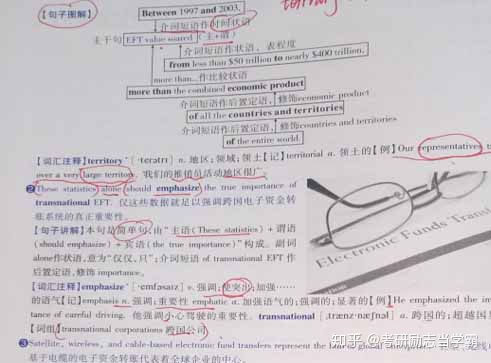 【句子图解】
Between 1997 and 2003,
介词短语作时间状语
主干句 EFT value soared （主+谓）
介词短语作状语，表程度
from less than $50 trillion to nearly $400 trillion,
more than...作比较状语
more than the combined economic product
介词短语作后置定语，修饰economic product
of all the countries and territories
介词短语作后置定语，修饰countries and territories
of the entire world.
【词汇注释】territory n. 地区；领域；领土【记】territorial a. 领土的【例】Our representatives
over a very large territory. 我们的推销员活动地区很广。
❷These statistics alone should emphasize the true importance of
transnational EFT. 仅这些数据就足以强调跨国电子资金转
账系统的真正重要性。
【句子讲解】本句是简单句，由“主语(These statistics)＋谓语
(should emphasize)＋宾语(the true importance)”构成。副词
alone作状语，意为“仅仅，只”；介词短语 of transnational EFT 作
后置定语，修饰 importance。
【词汇注释】emphasize v. 强调；使突出；加强……
的语气【记】emphasis n. 强调；重要性 emphatic a. 加强语气的；强调的；显著的【例】He emphasized the
tance of careful driving. 他强调小心驾驶的重要性。 transnational a. 跨国的；超越国
【词组】transnational corporations 跨国公司
❸Satellite, wireless, and cable-based electronic fund transfers
基于电缆的电子资金转账代表着全球企业的中心。
Electronic Funds Trans
知乎 @考研励志当学霸